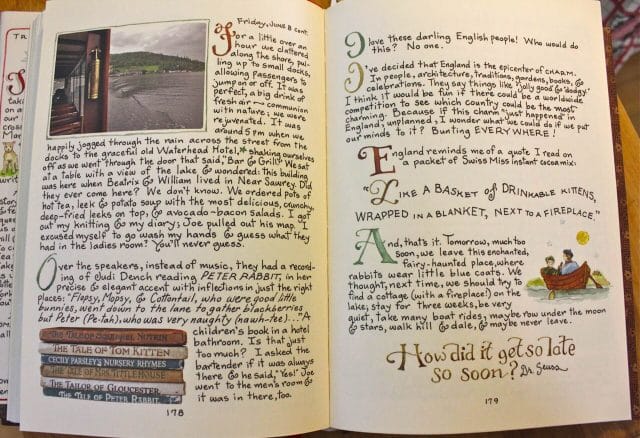 Friday, June 8 cont.
For a little over an
hour we clattered
along the shore, pul-
ling up to small docks,
allowing passengers to
jump on or off. It was
perfect, a big drink of
fresh air ~ communion
with nature; we were
rejuvenated. It was
around 5 pm when we
happily jogged through the rain across the street from the
docks to the graceful old Waterhead Hotel,* shaking ourselves
off as we went through the door that said, "Bar & Grill." We sat
at a table with a view of the lake & wondered: this building
was here when Beatrix & William lived in Near Sawrey. Did
they ever come here? We don't know. We ordered pots of
hot tea, leek & potato soup with the most delicious, crunchy,
deep-fried leeks on top, & avocado-bacon salads. I got
out my knitting & my diary; Joe pulled out his map. I
excused myself to go wash my hands & guess what they
had in the ladies room? You'll never guess.
Over the speakers, instead of music, they had a record-
ing of Judi Dench reading, PETER RABBIT, in her
precise & elegant accent with inflections in just the right
places: "Flopsy, Mopsy, & Cottontail, who were good little
bunnies, went down to the lane to gather blackberries
but Peter (Pe-tah), who was very naughty (nawh-tee)..." A
children's book in a hotel
bathroom. Is that just
too much? I asked the
bartender if it was always
there & he said, "Yes!" Joe
went to the men's room &
it was in there, too.
THE TALE OF SQUIRREL NUTKIN
THE TALE OF TOM KITTEN
CECILY PARSLEY'S NURSERY RHYMES
THE TAILOR OF GLOUCESTER
THE TALE OF PETER RABBIT
178
I love these darling English people! Who would do
this? No one.
I've decided that England is the epicenter of CHARM.
In people, architecture, traditions, gardens, books, &
celebrations. They say things like "jolly good" & "dodgy."
I think it would be fun if there could be a worldwide
competition to see which country could be the most
charming. Because if this charm "just happened" in
England, unplanned, I wonder what we could do if we put
our minds to it? Bunting EVERYWHERE!
England reminds me of a quote I read on
a packet of Swiss Miss instant cocoa mix:
"LIKE A BASKET OF DRINKABLE KITTENS,
WRAPPED IN A BLANKET, NEXT TO A FIREPLACE."
And, that's it. Tomorrow, much too
soon, we leave this enchanted,
fairy-haunted place, where
rabbits wear little blue coats. We
thought, next time, we should try to
find a cottage (with a fireplace) on the
lake, stay for three weeks, be very
quiet, take many boat rides, maybe row under the moon
& stars, walk hill & dale, & maybe never leave.
How did it get so late
so soon? Dr. Seuss
179